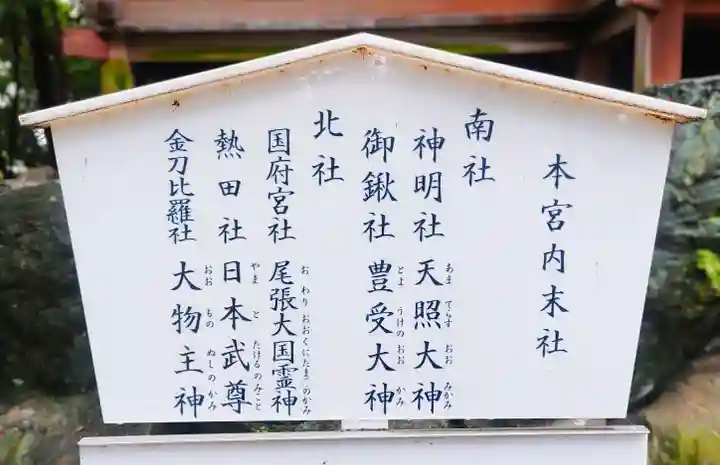 本宮内末社
南社
神明社 天照大神
あま てらす おお みかみ
御鍬社 豊受大神
とよ うけの おお かみ
北社
国府宮社 尾張大国霊神
お わり おおくにたまのかみ
熱田社 日本武尊
やま と たけるのみこと
金刀比羅社 大物主神
おお もの ぬしのかみ